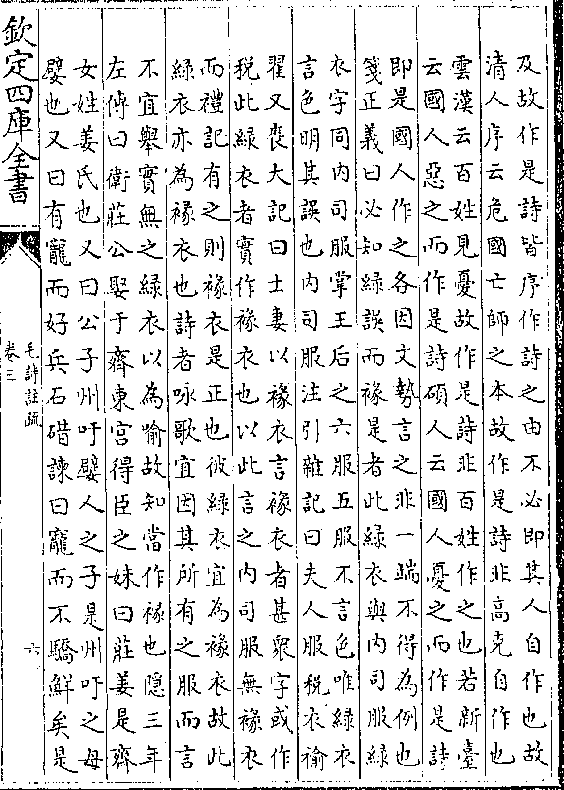 及故作是詩皆序作詩之由不必即其人自作也故
清人序云危國亡師之本故作是詩非高克自作也
雲漢云百姓見憂故作是詩非百姓作之也若新臺
云國人惡之而作是詩碩人云國人憂之而作是詩
即是國人作之各因文勢言之非一端不得為例也
箋正義曰必知綠誤而褖是者此綠衣與内司服綠
衣字同内司服掌王后之六服五服不言色唯綠衣
言色明其誤也内司服注引雜記曰夫人服税衣揄
翟又喪大記曰士妻以褖衣言褖衣者甚衆字或作
税此綠衣者實作褖衣也以此言之内司服無褖衣
而禮記有之則褖衣是正也彼綠衣宜為褖衣故此
綠衣亦為褖衣也詩者咏歌宜因其所有之服而言
不宜舉實無之綠衣以為喻故知當作褖也隱三年
左傳曰衛莊公娶于齊東宫得臣之妹曰莊姜是齊
女姓姜氏也又曰公子州吁嬖人之子是州吁之母
嬖也又曰有寵而好兵石碏諫曰寵而不驕鮮矣是
欽定四庫全書
毛詩註疏
卷三
六